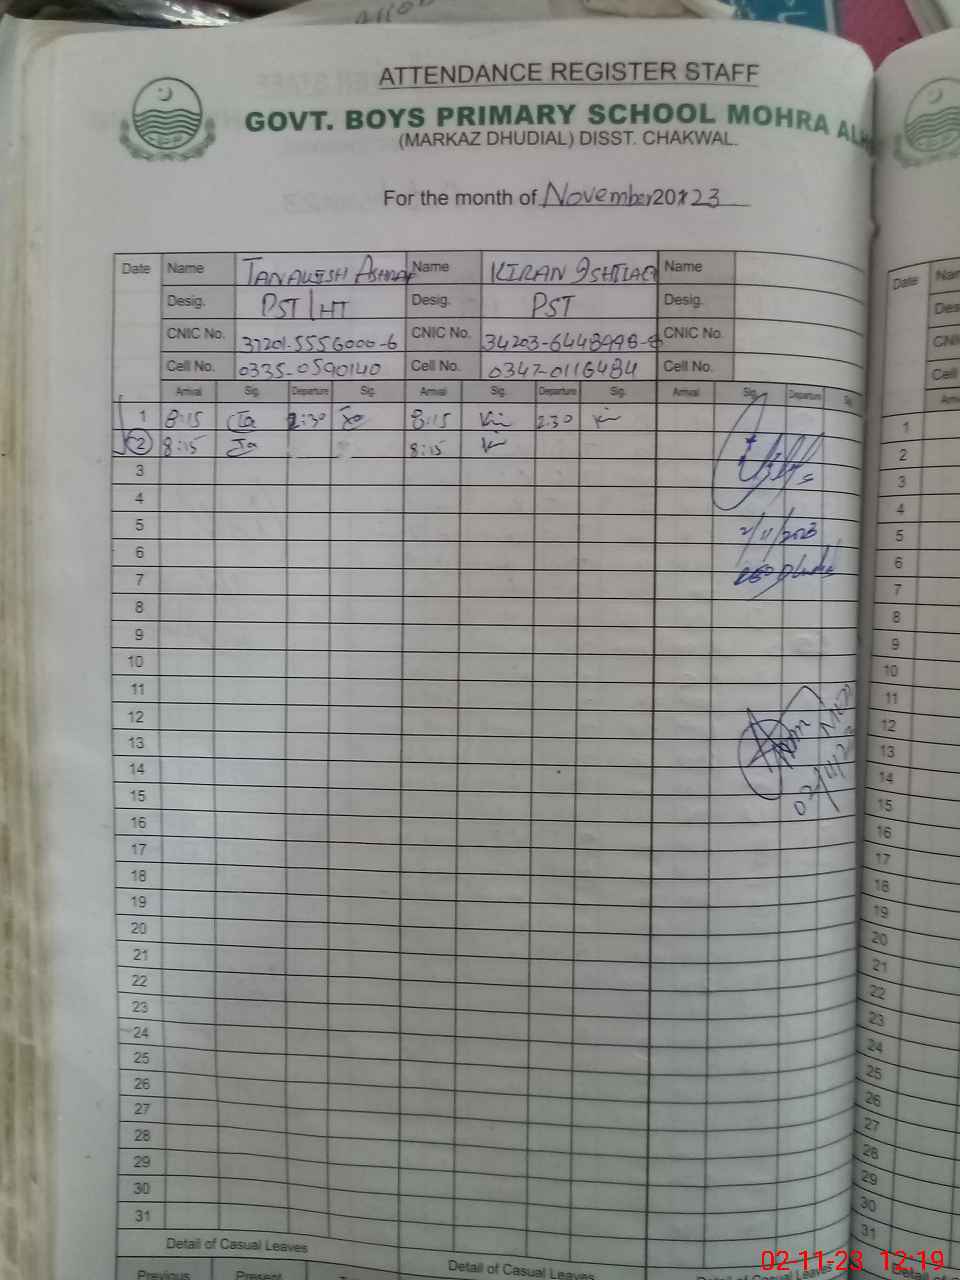 ATTENDANCE REGISTER STAFF
GOVT. BOYS PRIMARY SCHOOL MOHRA ALH
(MARKAZ DHUDIAL) DISST. CHAKWAL.
For the month of November 2023
Date Name Ashraf Name KIRAN ISHTIAQ Name
Desig. PST/HT Desig. PST Desig.
CNIC No. 37201-5556000-6 CNIC No. 34203-6448998-8 CNIC No.
Cell No. 0335-0590140 Cell No. 0347-0116484 Cell No.
Arrival Sig. Departure Sig. Arrival Sig. Departure Sig. Arrival Sig. Departure Sig.
1 8:15 2:30 8:15 2:30
2 8:15 8:15
3
4
5 2/11/2023
6
7
8
9
10
11
12
13
14
15 02/11/2
16
17
18
19
20
21
22
23
24
25
26
27
28
29
30
31
Detail of Casual Leaves Detail of Casual Leaves Detail of Casual Leaves
Previous Present
Date Nam
Des
CNI
Cell
Arri
1
2
3
4
5
6
7
8
9
10
11
12
13
14
15
16
17
18
19
20
21
22
23
24
25
26
27
28
29
30
31
Detail o
02-11-23 12:19